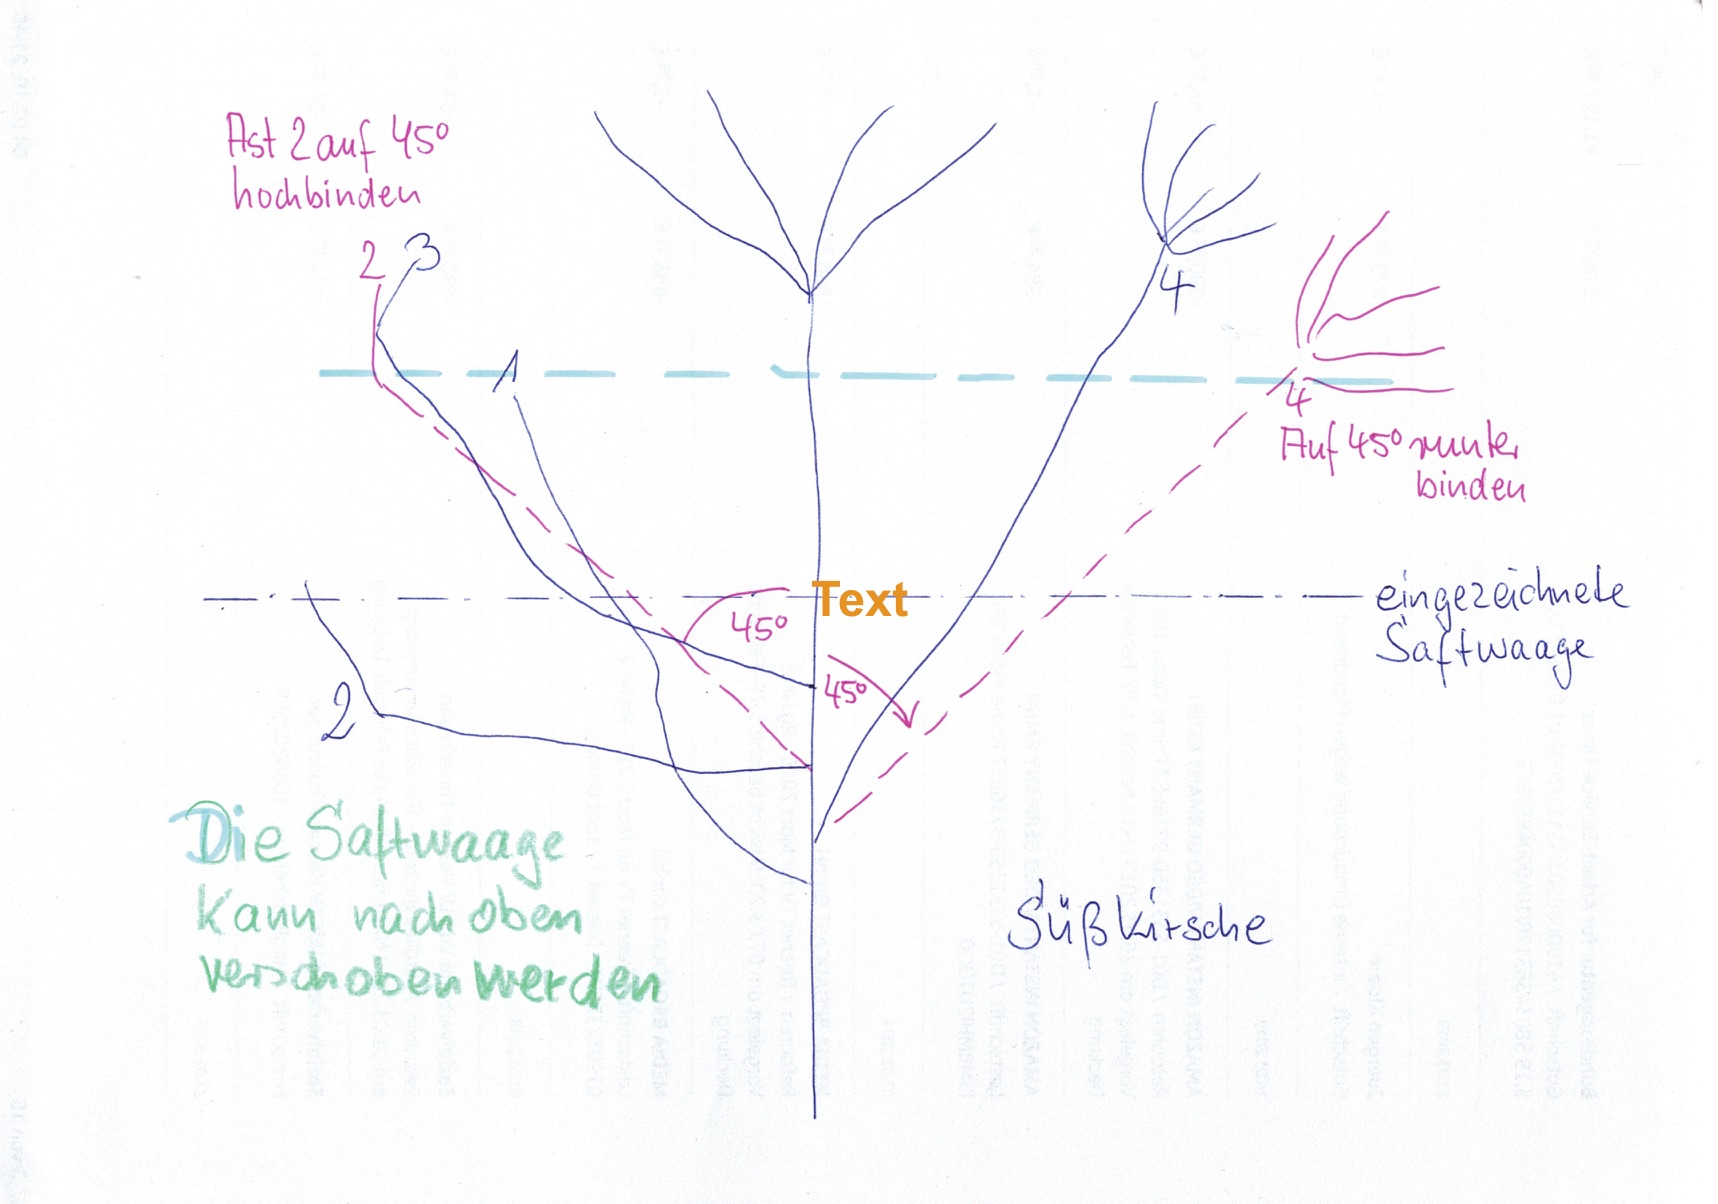 Ast 2 auf 45°
hochbinden
2 3
1
4
4
Auf 45° runter
binden
Text
45°
45°
eingezeichnete
Saftwaage
2
Die Saftwaage
kann nach oben
verschoben werden
Süßkirsche